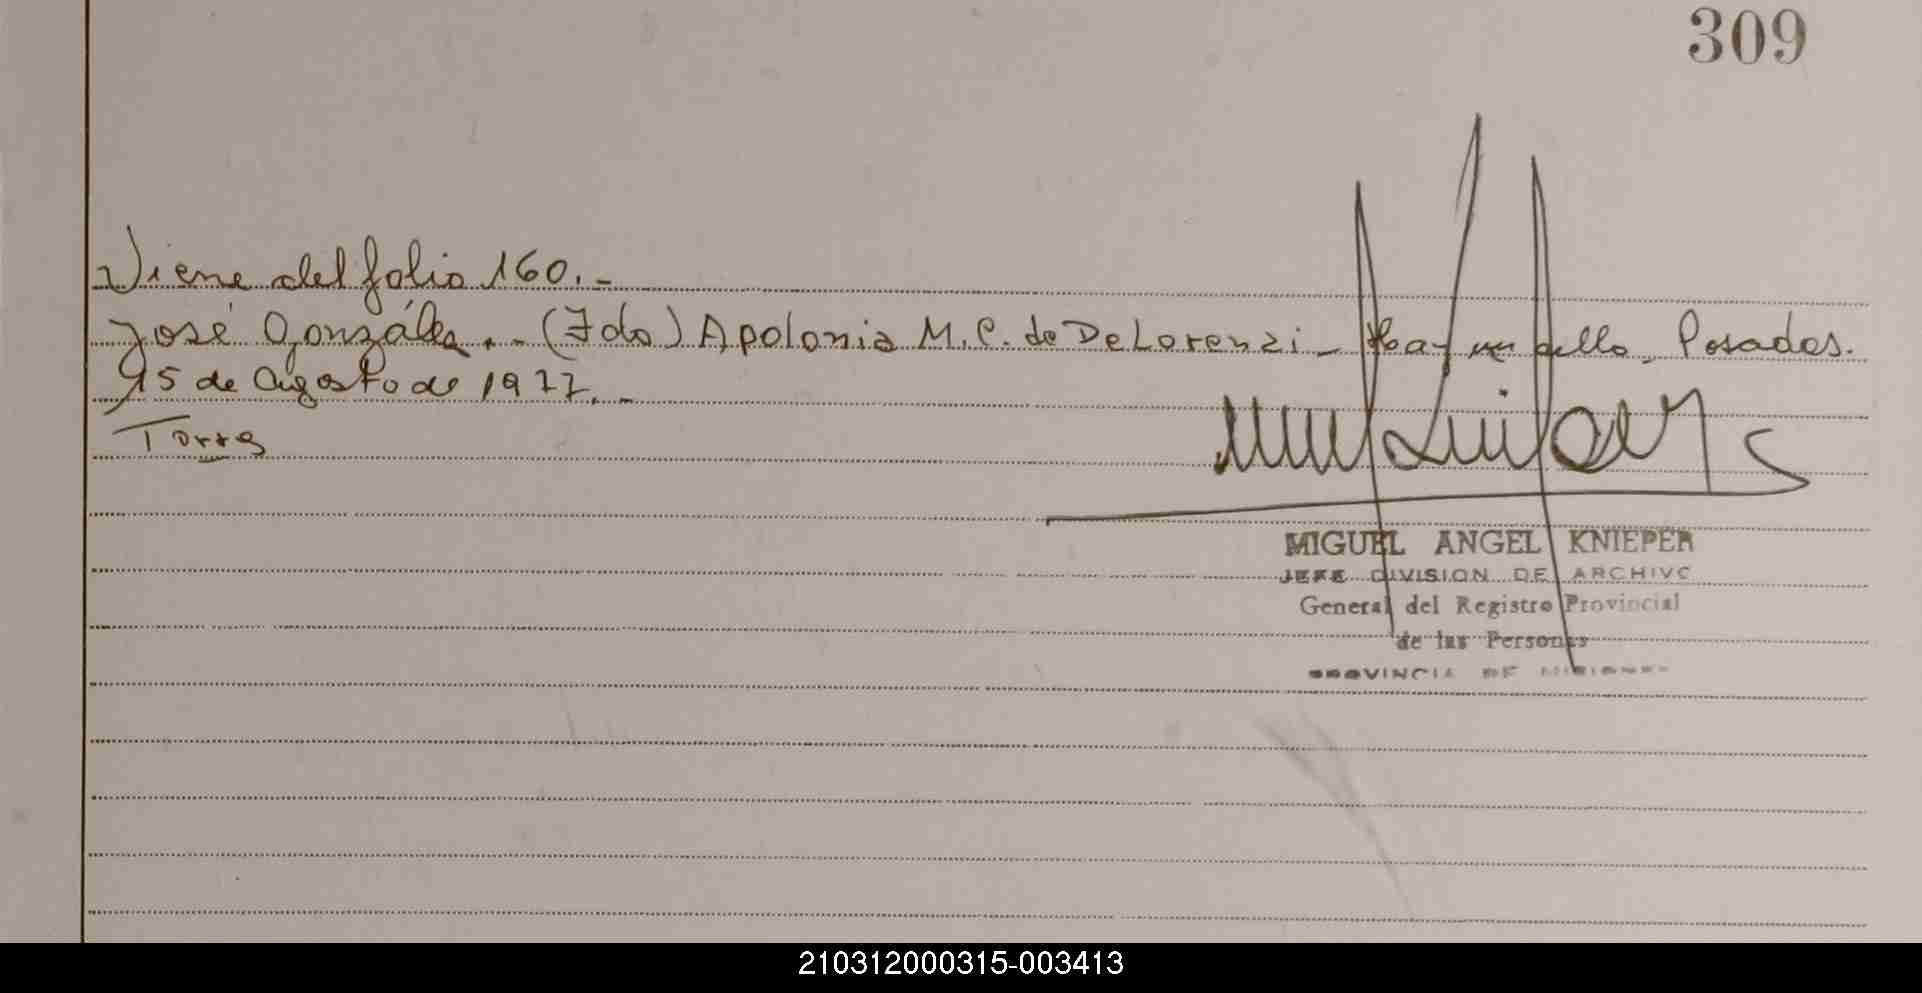 309
Viene del folio 160.-
José González.- (Fdo) Apolonia M.C. de DeLorenzi - Hay un sello. Posadas.
15 de Agosto de 1977.-
Torres
MIGUEL ANGEL KNIEPER
JEFE DIVISION DE ARCHIVO
General del Registro Provincial
de las Personas
PROVINCIA DE MISIONES
210312000315-003413